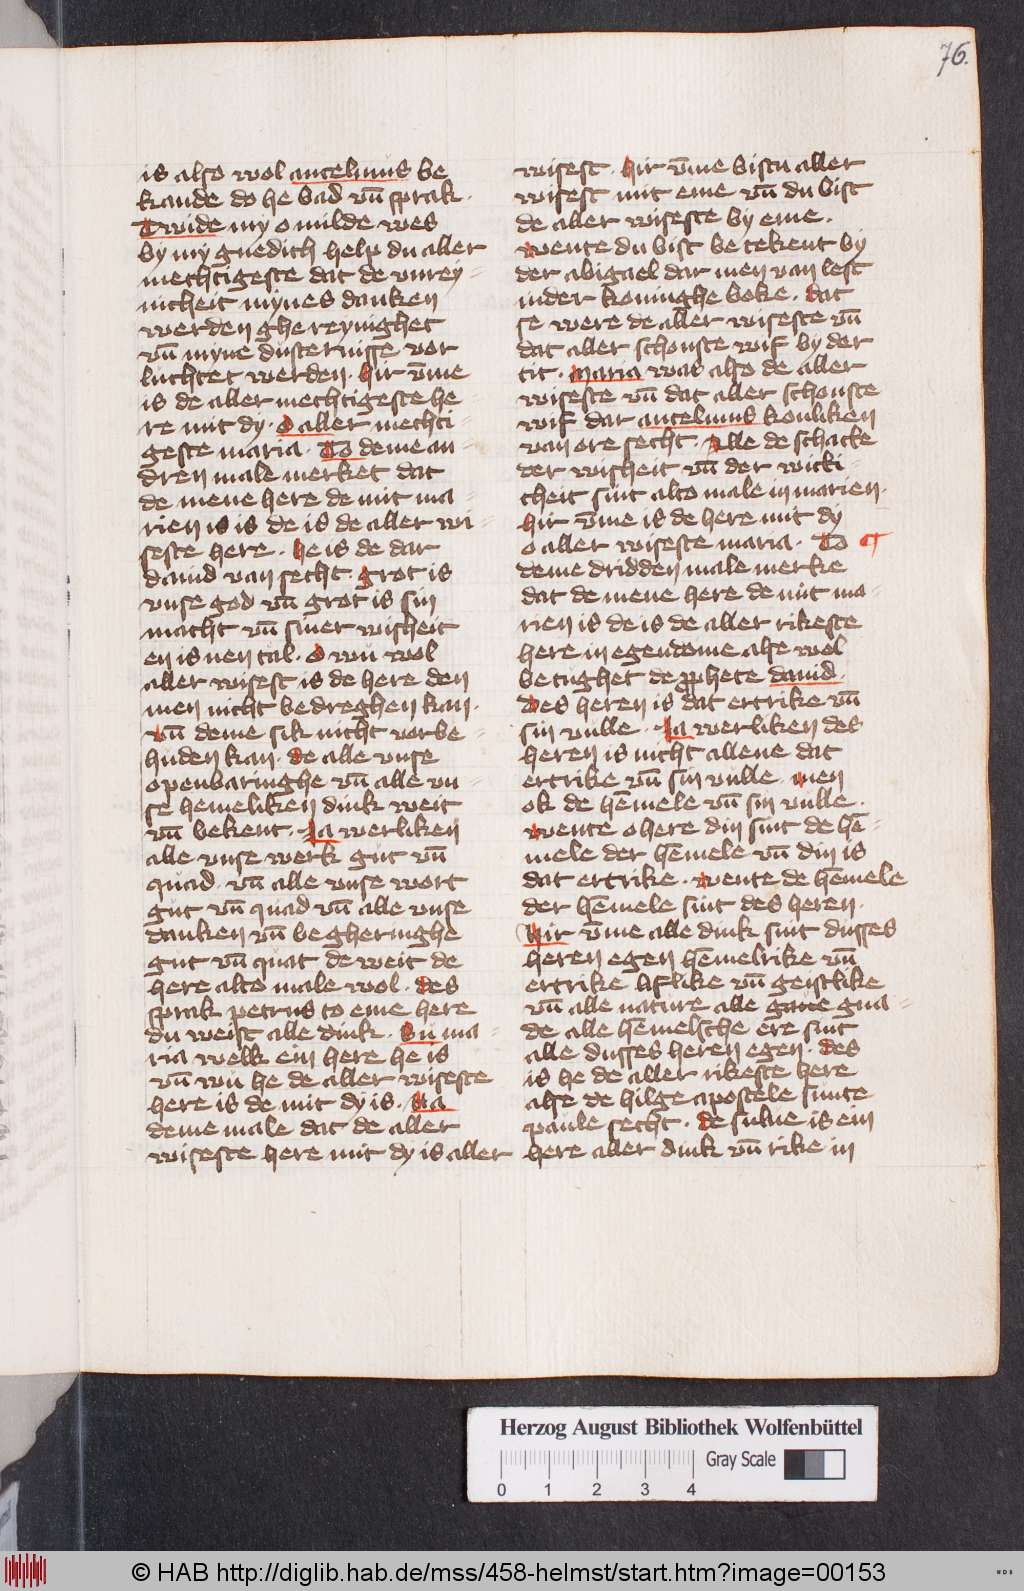 76.
is also wol ancelmus be
kande do he bad vn̄ sprak.
Twide my o milde wes
by my gnedich help du aller
mechtigeste dat de vnrey=
nicheit mynes danken
werden ghereynighet
vn̄ myne dusternisse vor
luchtet werden. hir v̄me
is de aller mechtigeste he=
re mit dy. O aller mechti=
geste maria. To deme an=
dren male merket dat
de mene here de mit ma=
rien is is de is de aller wi=
seste here. he is de dar
dauid van secht. grot is
vnse god vn̄ grot is sin
macht vn̄ siner wisheit
en is nen tal. O wu wol
aller wisest is de here den
men nicht bedreghen kan.
vn̄ deme sik nicht vorbe=
huden kan. de alle vnse
openbaringhe vn̄ alle vn=
se hemeliken dink weit
vn̄ bekent. Ja werliken
alle vnse werk gut vn̄
quad. vn̄ alle vnse wort
gut vn̄ quad vn̄ alle vnse
danken vn̄ begheringhe
gut vn̄ quat de weit de
here alto male wol. des
sprak petrus to eme here
du weist alle dink. Su ma=
ria welk ein here he is
vn̄ wu he de aller wiseste
here is de mit dy is. Na
deme male dat de aller
wiseste here mit dy is aller
wisest. hir v̄me bistu aller
wisest mit eme vn̄ du bist
de aller wiseste by eme.
wente du bist betekent by
der abigael dar men van lest
in der koninghe boke. dat
se were de aller wiseste vn̄
dat aller schonste wif by der
tit. Maria was also de aller
wiseste vn̄ dat aller schonste
wif dar ancelmus konliken
van ore secht. Alle de schatke
der wisheit vn̄ der witti=
cheit sint alto male in marien.
hir v̄me is de here mit dy
o aller wiseste maria. To
deme dridden male merke
dat de mene here de mit ma=
rien is de is de aller rikeste
here in egendome alse wol
betughet de p̄phete dauid.
Des heren is dat ertrike vn̄
sin vulle. Ja werliken des
heren is nicht allene dat
ertrike vn̄ sin vulle. men
ok de hēmele vn̄ sin vulle.
wente o here din sint de hē=
mele der hēmele vn̄ din is
dat ertrike. wente de hēmele
der hēmele sint des heren.
Hir v̄me alle dink sint dusses
heren egen hēmelrike vn̄
ertrike liflike vn̄ geistlike
vn̄ alle nature alle gna=
de alle hēmelsche ere sint
alle dusses heren egen. des
is he de aller rikeste here
alse de hilge apostele sunte
paule secht. de sulue is ein
here aller dink vn̄ rike in
Herzog August Bibliothek Wolfenbüttel
Gray Scale
0 1 2 3 4
© HAB http://diglib.hab.de/mss/458-helmst/start.htm?image=00153